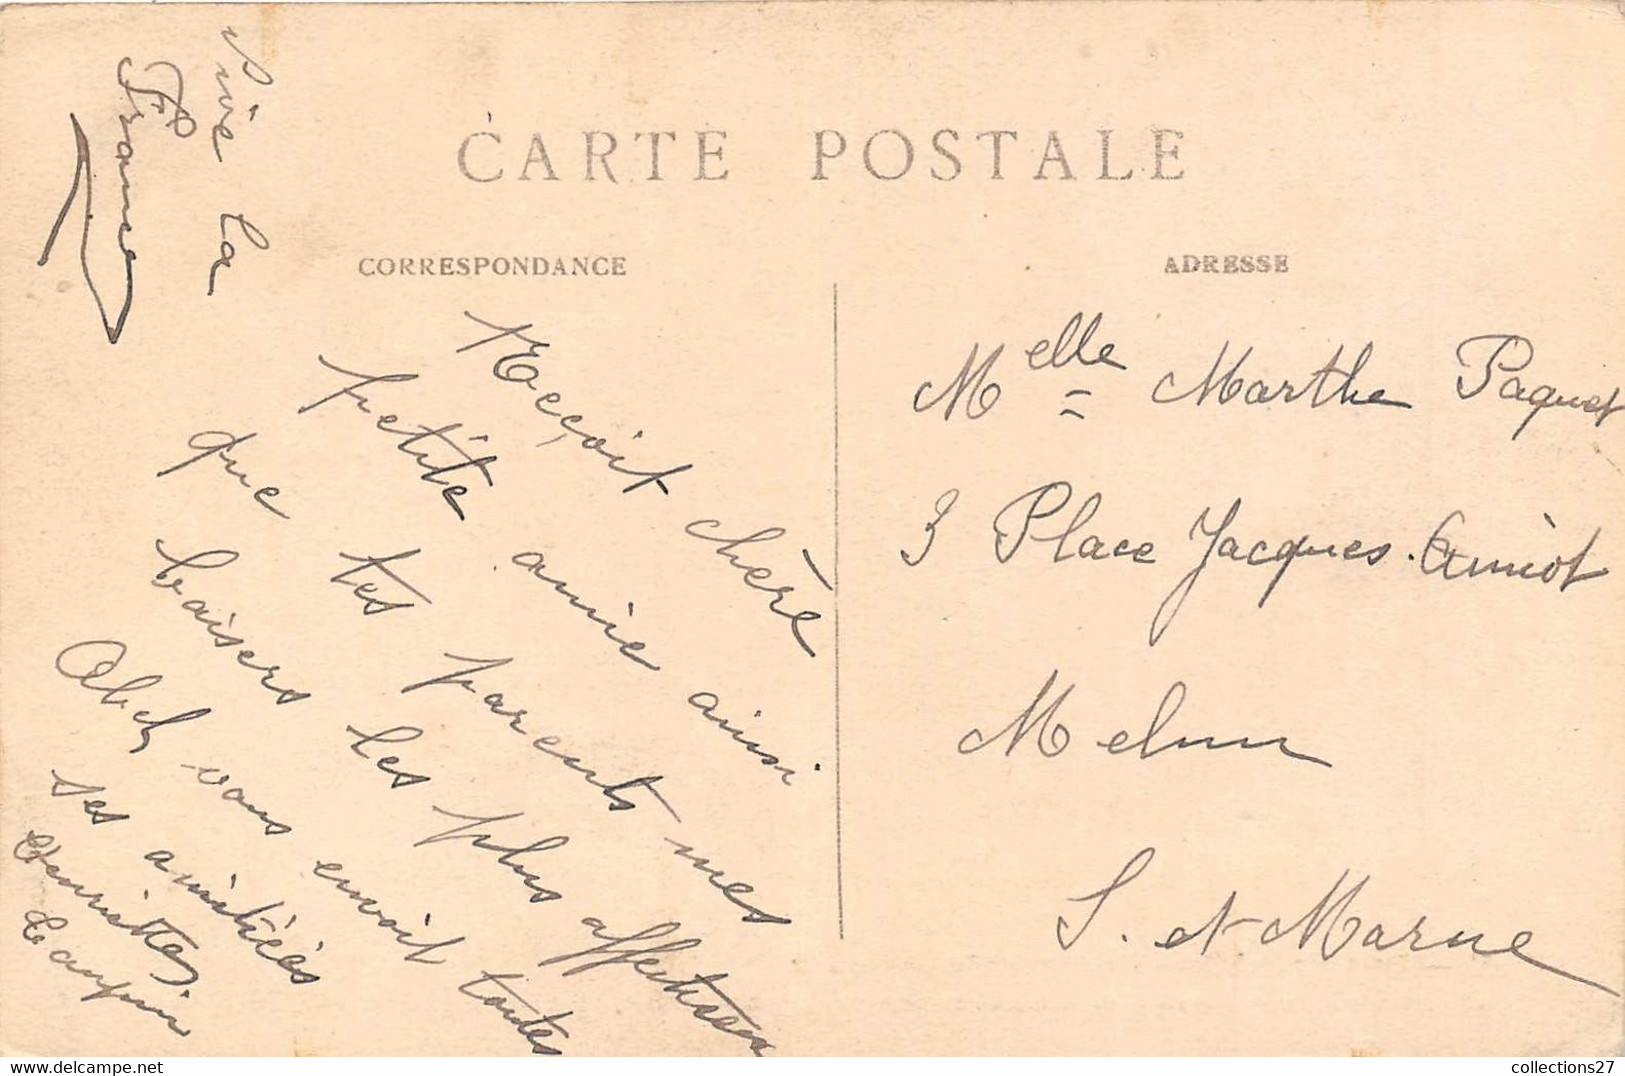 Vive la
France
CARTE POSTALE
CORRESPONDANCE
ADRESSE
Reçoit chère
petite amie ainsi
que tes parents mes
baisers les plus affectueux
Abel vous envoit toutes
ses amitiés
Henriette
Melle Marthe Paquet
3 Place Jacques Amiot
Melun
S. et Marne
collections27